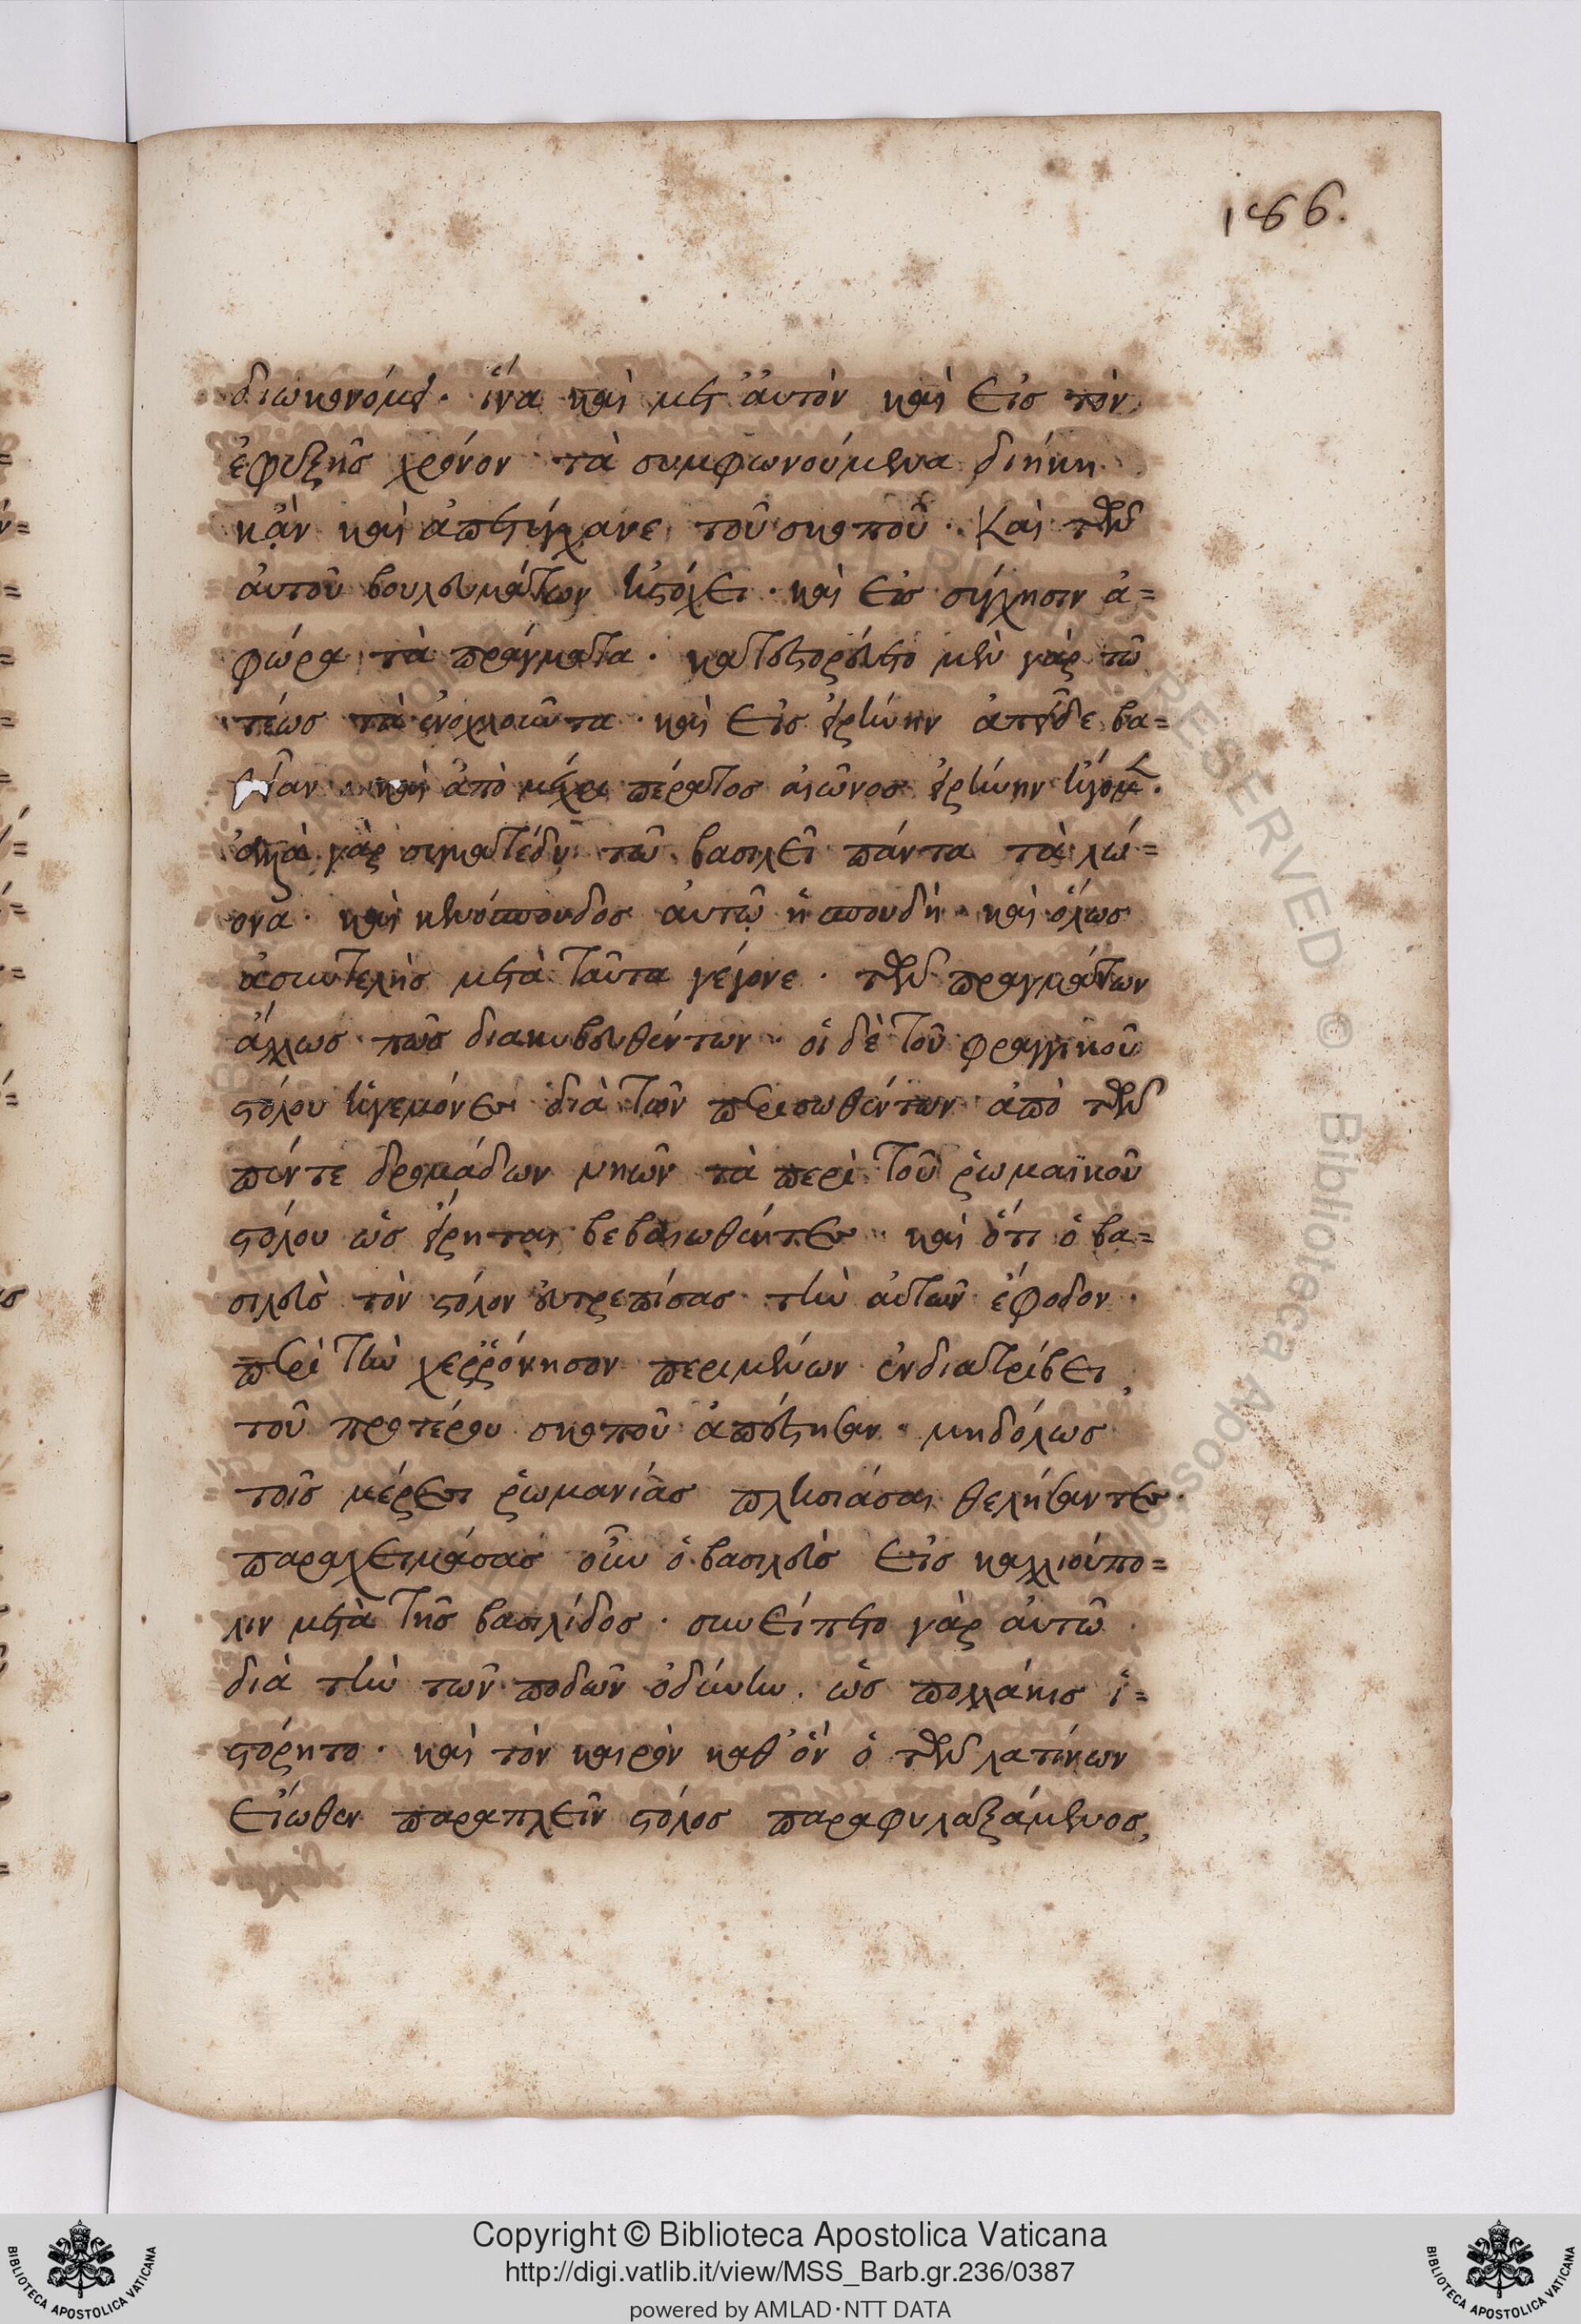 186.
διωκονόμει. ἵνα καὶ μετ' ἀυτὸν καὶ εἰς τὸν
ἐφεξῆς χρόνον τὰ συμφωνούμενα διήκῃ
κἂν καὶ ἀπετύγχανε τοῦ σκοποῦ. Καὶ τῶν
ἀυτοῦ βουλευμάτων ἠστόχει. καὶ εἰς σύγχησιν ἀ=
φώρα τὰ πράγματα. κατεστορεύετο μὲν γὰρ τῶ
τέως τὰ ἐνοχλοῦντα. καὶ εἰς εἰρήνην ἀπεῖδε βα=
θεῖαν καὶ ἀπὸ μέχρι πέρατος αἰῶνος εἰρήνην ἠγομεν.
ἀλλὰ γὰρ συγκατέδυ τῶ βασιλεῖ πάντα τὰ λώ=
ονα. καὶ κενόσπουδος ἀυτῶ ἡ σπουδὴ. καὶ ὅλως
ἀσυντελὴς μετὰ ταῦτα γέγονε. τῶν πραγμάτων
ἄλλως πως διακυβευθέντων. οἱ δὲ τοῦ φραγγικοῦ
στόλου ἡγεμόνες διὰ τῶν περισωθέντων ἀπὸ τῶν
πέντε δρομάδων νηῶν τὰ περὶ τοῦ ῥωμαϊκοῦ
στόλου ὡς εἴρηται βεβαιωθέντες. καὶ ὅτι ὁ βα=
σιλεὺς τὸν στόλον ἐυτρεπίσας τὴν ἀυτῶν ἔφοδον.
περὶ τὴν χερρόνησον περιμένων ἐνδιατρίβει,
τοῦ προτέρου σκοποῦ ἀπέστησαν. μηδόλως
τοῖς μέρεσι ῥωμανίας πλησιάσαι θελήσαντες.
παραχειμάσας οὖν ὁ βασιλεὺς εἰς καλλιούπο=
λιν μετὰ τῆς βασιλίδος. συνείπετο γὰρ ἀυτῶ
διὰ τὴν τῶν ποδῶν ὀδύνην. ὡς πολλάκις ἱ=
στόρητο. καὶ τὸν καιρὸν καθ' ὃν ὁ τῶν λατίνων
εἴωθεν παραπλεῖν στόλος παραφυλαξάμενος,
Copyright © Biblioteca Apostolica Vaticana
http://digi.vatlib.it/view/MSS_Barb.gr.236/0387
powered by AMLAD·NTT DATA
BIBLIOTECA APOSTOLICA VATICANA
BIBLIOTECA APOSTOLICA VATICANA